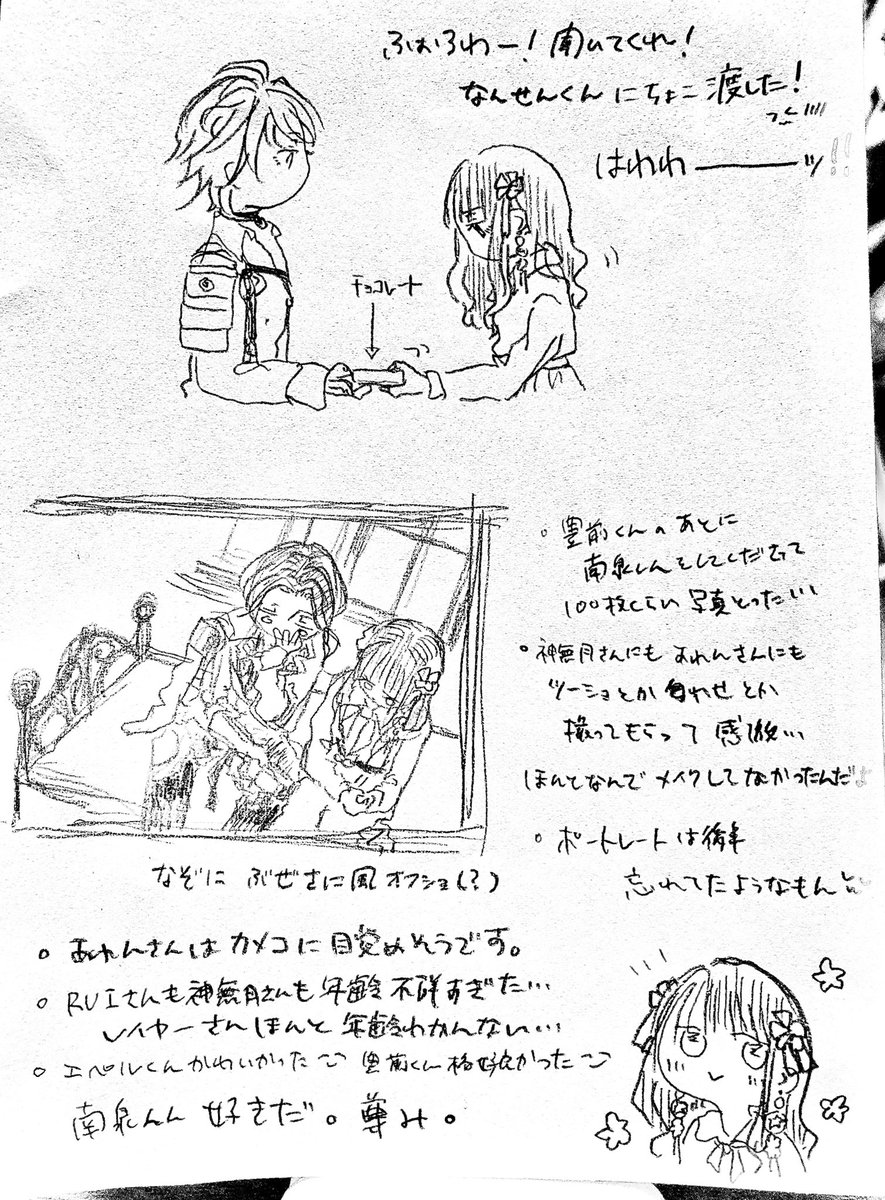 ふおふわー！聞いてくれ！
なんせんくんにちょこ渡した！
はわわーーーッ!!
チョコレート
豊前くんのあとに
南泉くんをしてくださって
100枚くらい写真とった…
神無月さんにもあれんさんにも
ツーショとか自わせとか
撮ってもらって感激…
ほんとなんでメイクしてなかったんだよ
ポートレートは後半
忘れてたようなもん
なぞにぶぜさに風オフショ(？)
あれんさんはカメコに目覚めそうです。
RUIさんも神無月さんも年齢不詳すぎた…
レイヤーさんほんと年齢わかんない…
エペルくんかわいかった 豊前くん格好良かった
南泉くん好きだ。尊み。